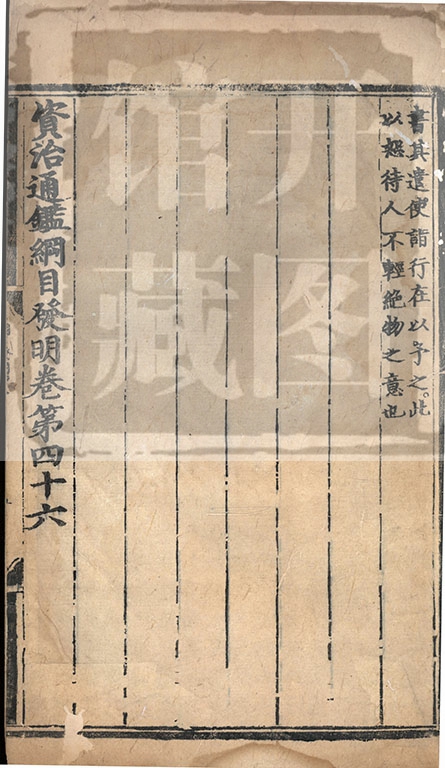 書其遣使詣行在以予之。此
以恕待人不輕絶物之意也
資治通鑑綱目發明卷第四十六
卉图
馆藏